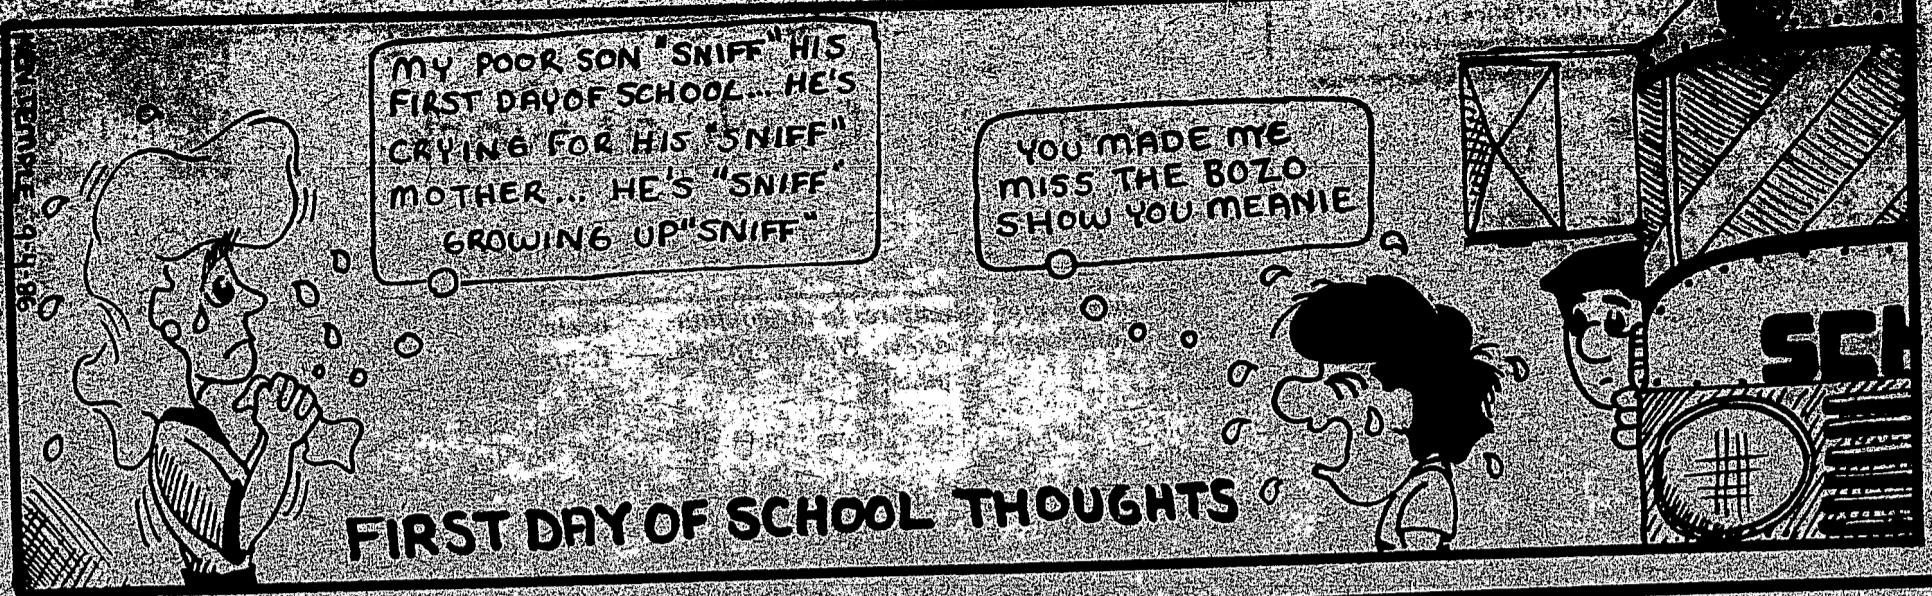 MY POOR SON "SNIFF" HIS
FIRST DAY OF SCHOOL... HE'S
CRYING FOR HIS "SNIFF"
MOTHER... HE'S "SNIFF"
GROWING UP "SNIFF"
YOU MADE ME
MISS THE BOZO
SHOW YOU MEANIE
SCH
FIRST DAY OF SCHOOL THOUGHTS
TEMPLE 9.4.86